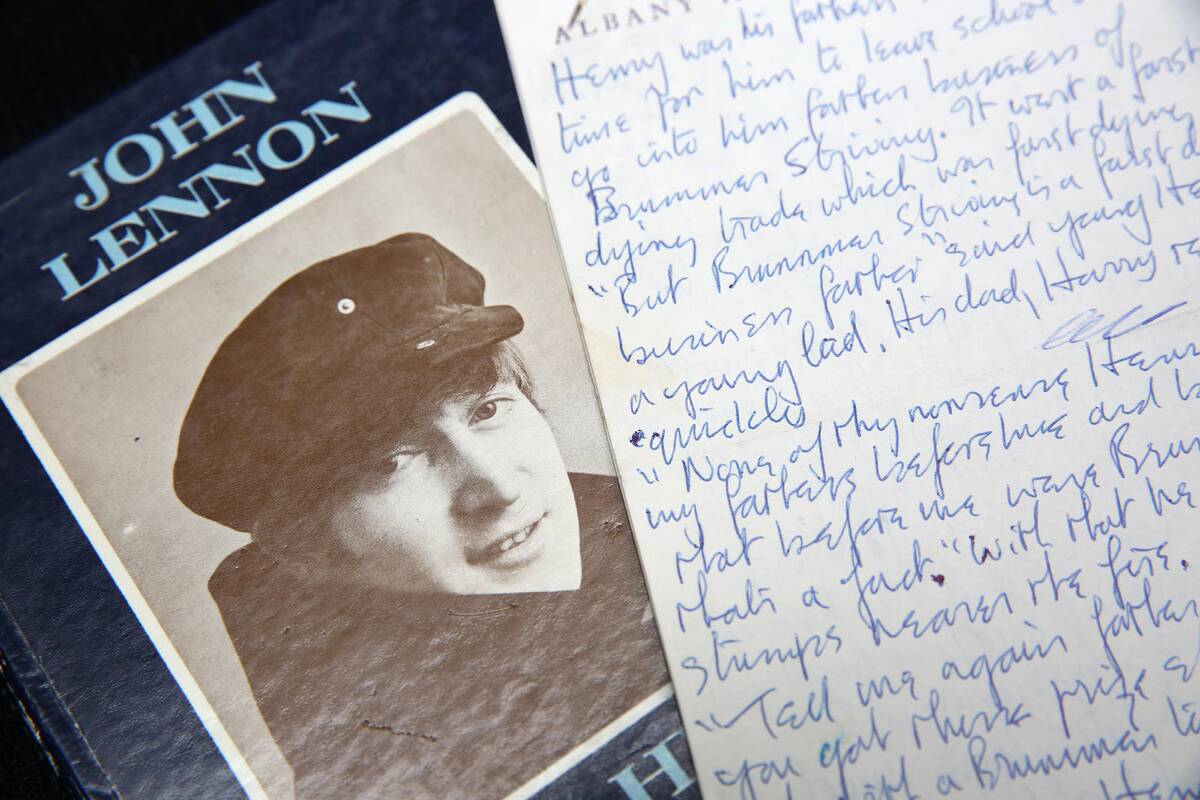 JOHN
LENNON
H
ALBANY
Henry was his fathers
time for him to leave school
go into him fathers business of
Brummer Striving. It was a farst
dying trade which was farst dying
"But Brummer Striving is a farst d
business farther" said young He
a young lad. His dad, Harry re
quickly
"None of thy nonsense Hen
my fathers before me and b
that before me were Brum
thats a fact" with that he
stumps nearer the fire.
"Tell me again father
you got there prize
a Brummer
Hen